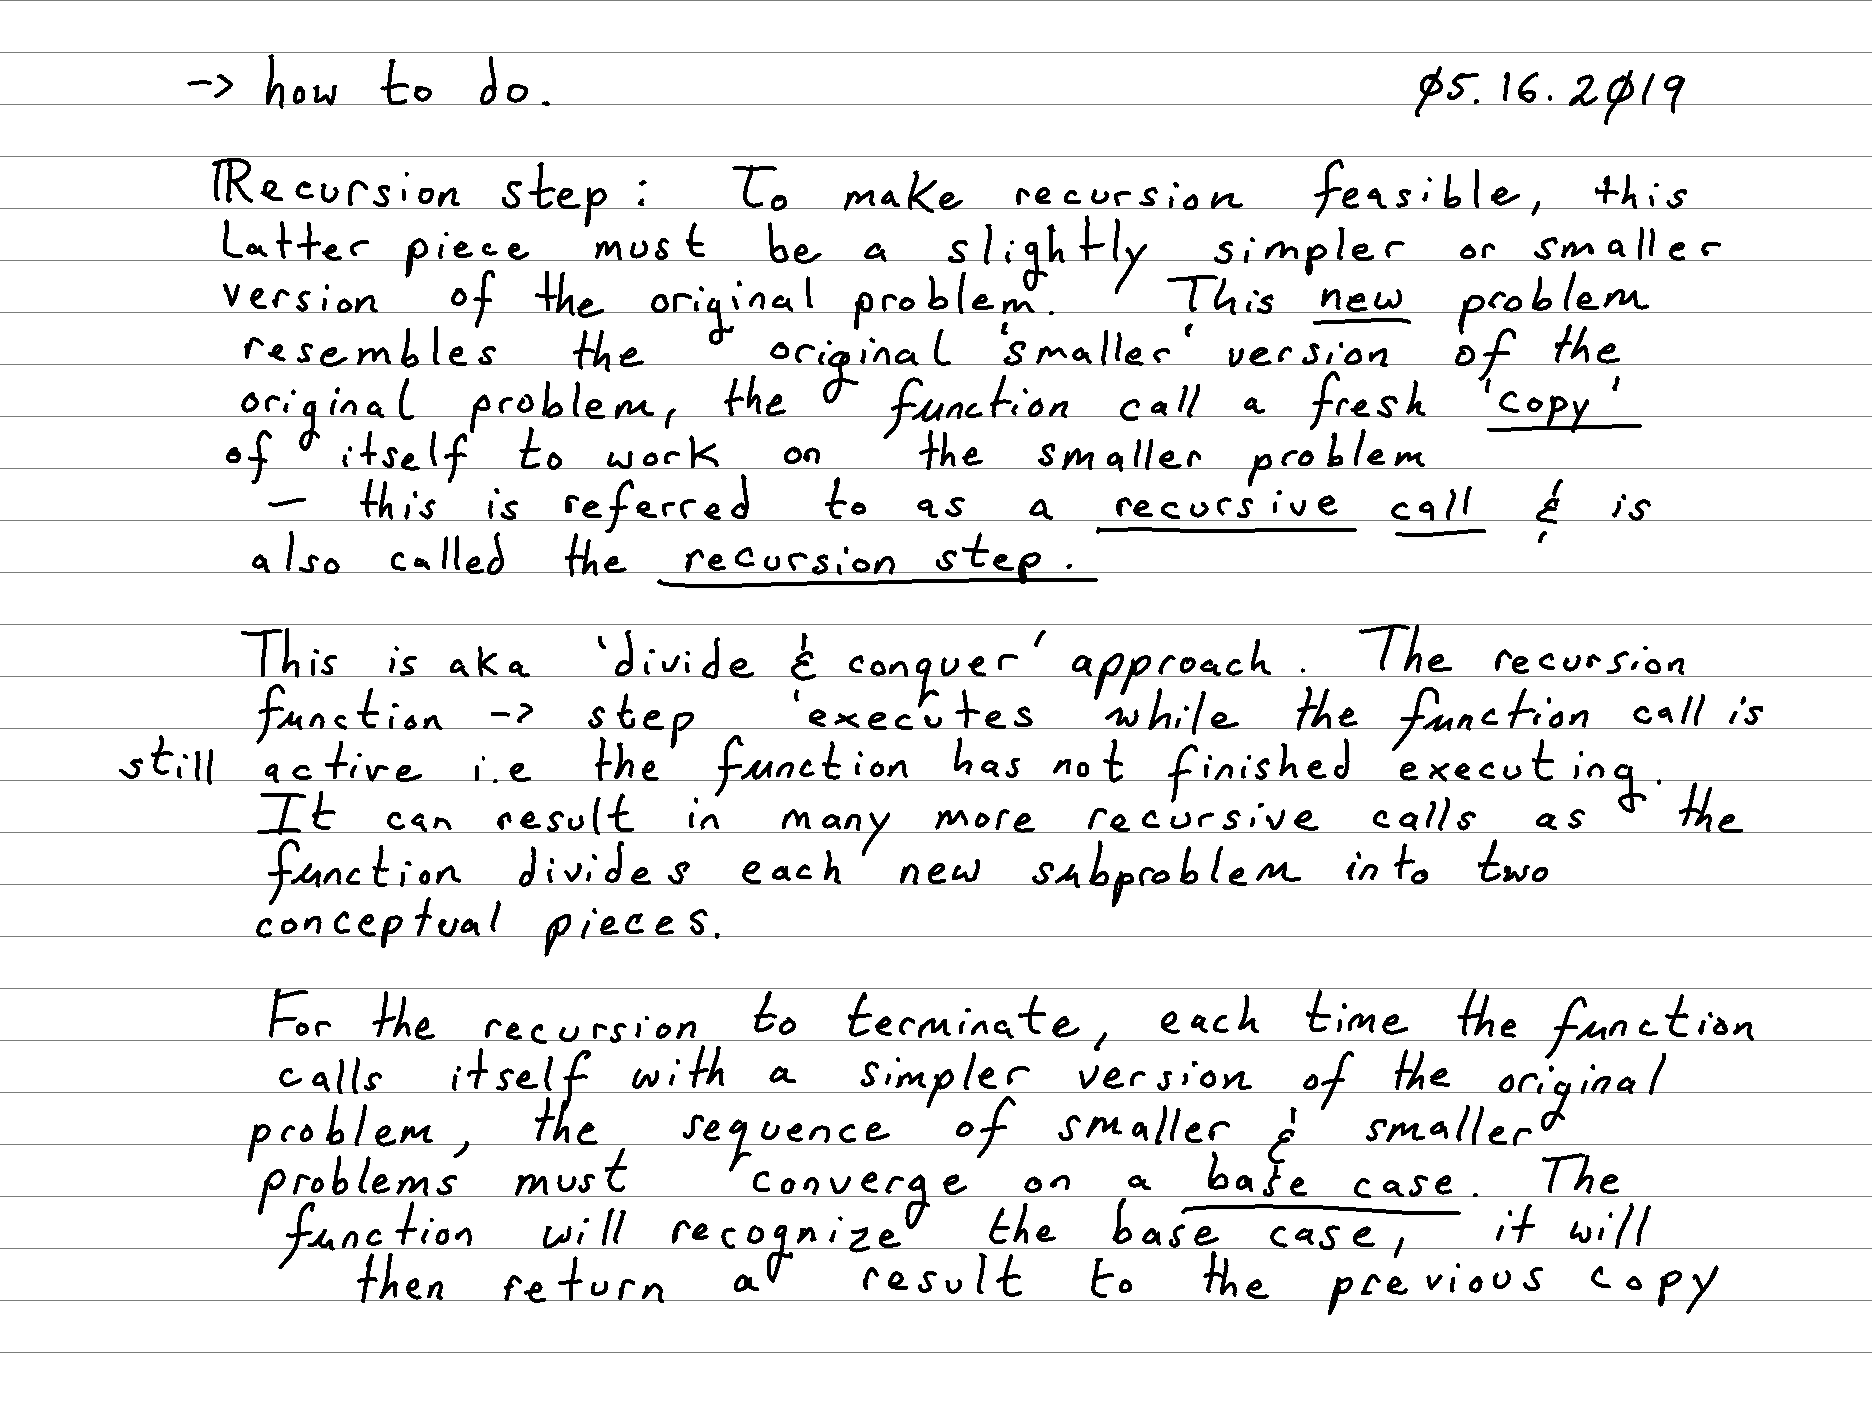 -> how to do. 05.16.2019
Recursion step: To make recursion feasible, this
latter piece must be a slightly simpler or smaller
version of the original problem. This new problem
resembles the original 'smaller' version of the
original problem, the function call a fresh 'copy'
of itself to work on the smaller problem
— this is referred to as a recursive call & is
also called the recursion step.
This is aka 'divide & conquer' approach. The recursion
function -> step executes while the function call is
still active i.e the function has not finished executing.
It can result in many more recursive calls as the
function divides each new subproblem into two
conceptual pieces.
For the recursion to terminate, each time the function
calls itself with a simpler version of the original
problem, the sequence of smaller & smaller
problems must converge on a base case. The
function will recognize the base case, it will
then return a result to the previous copy